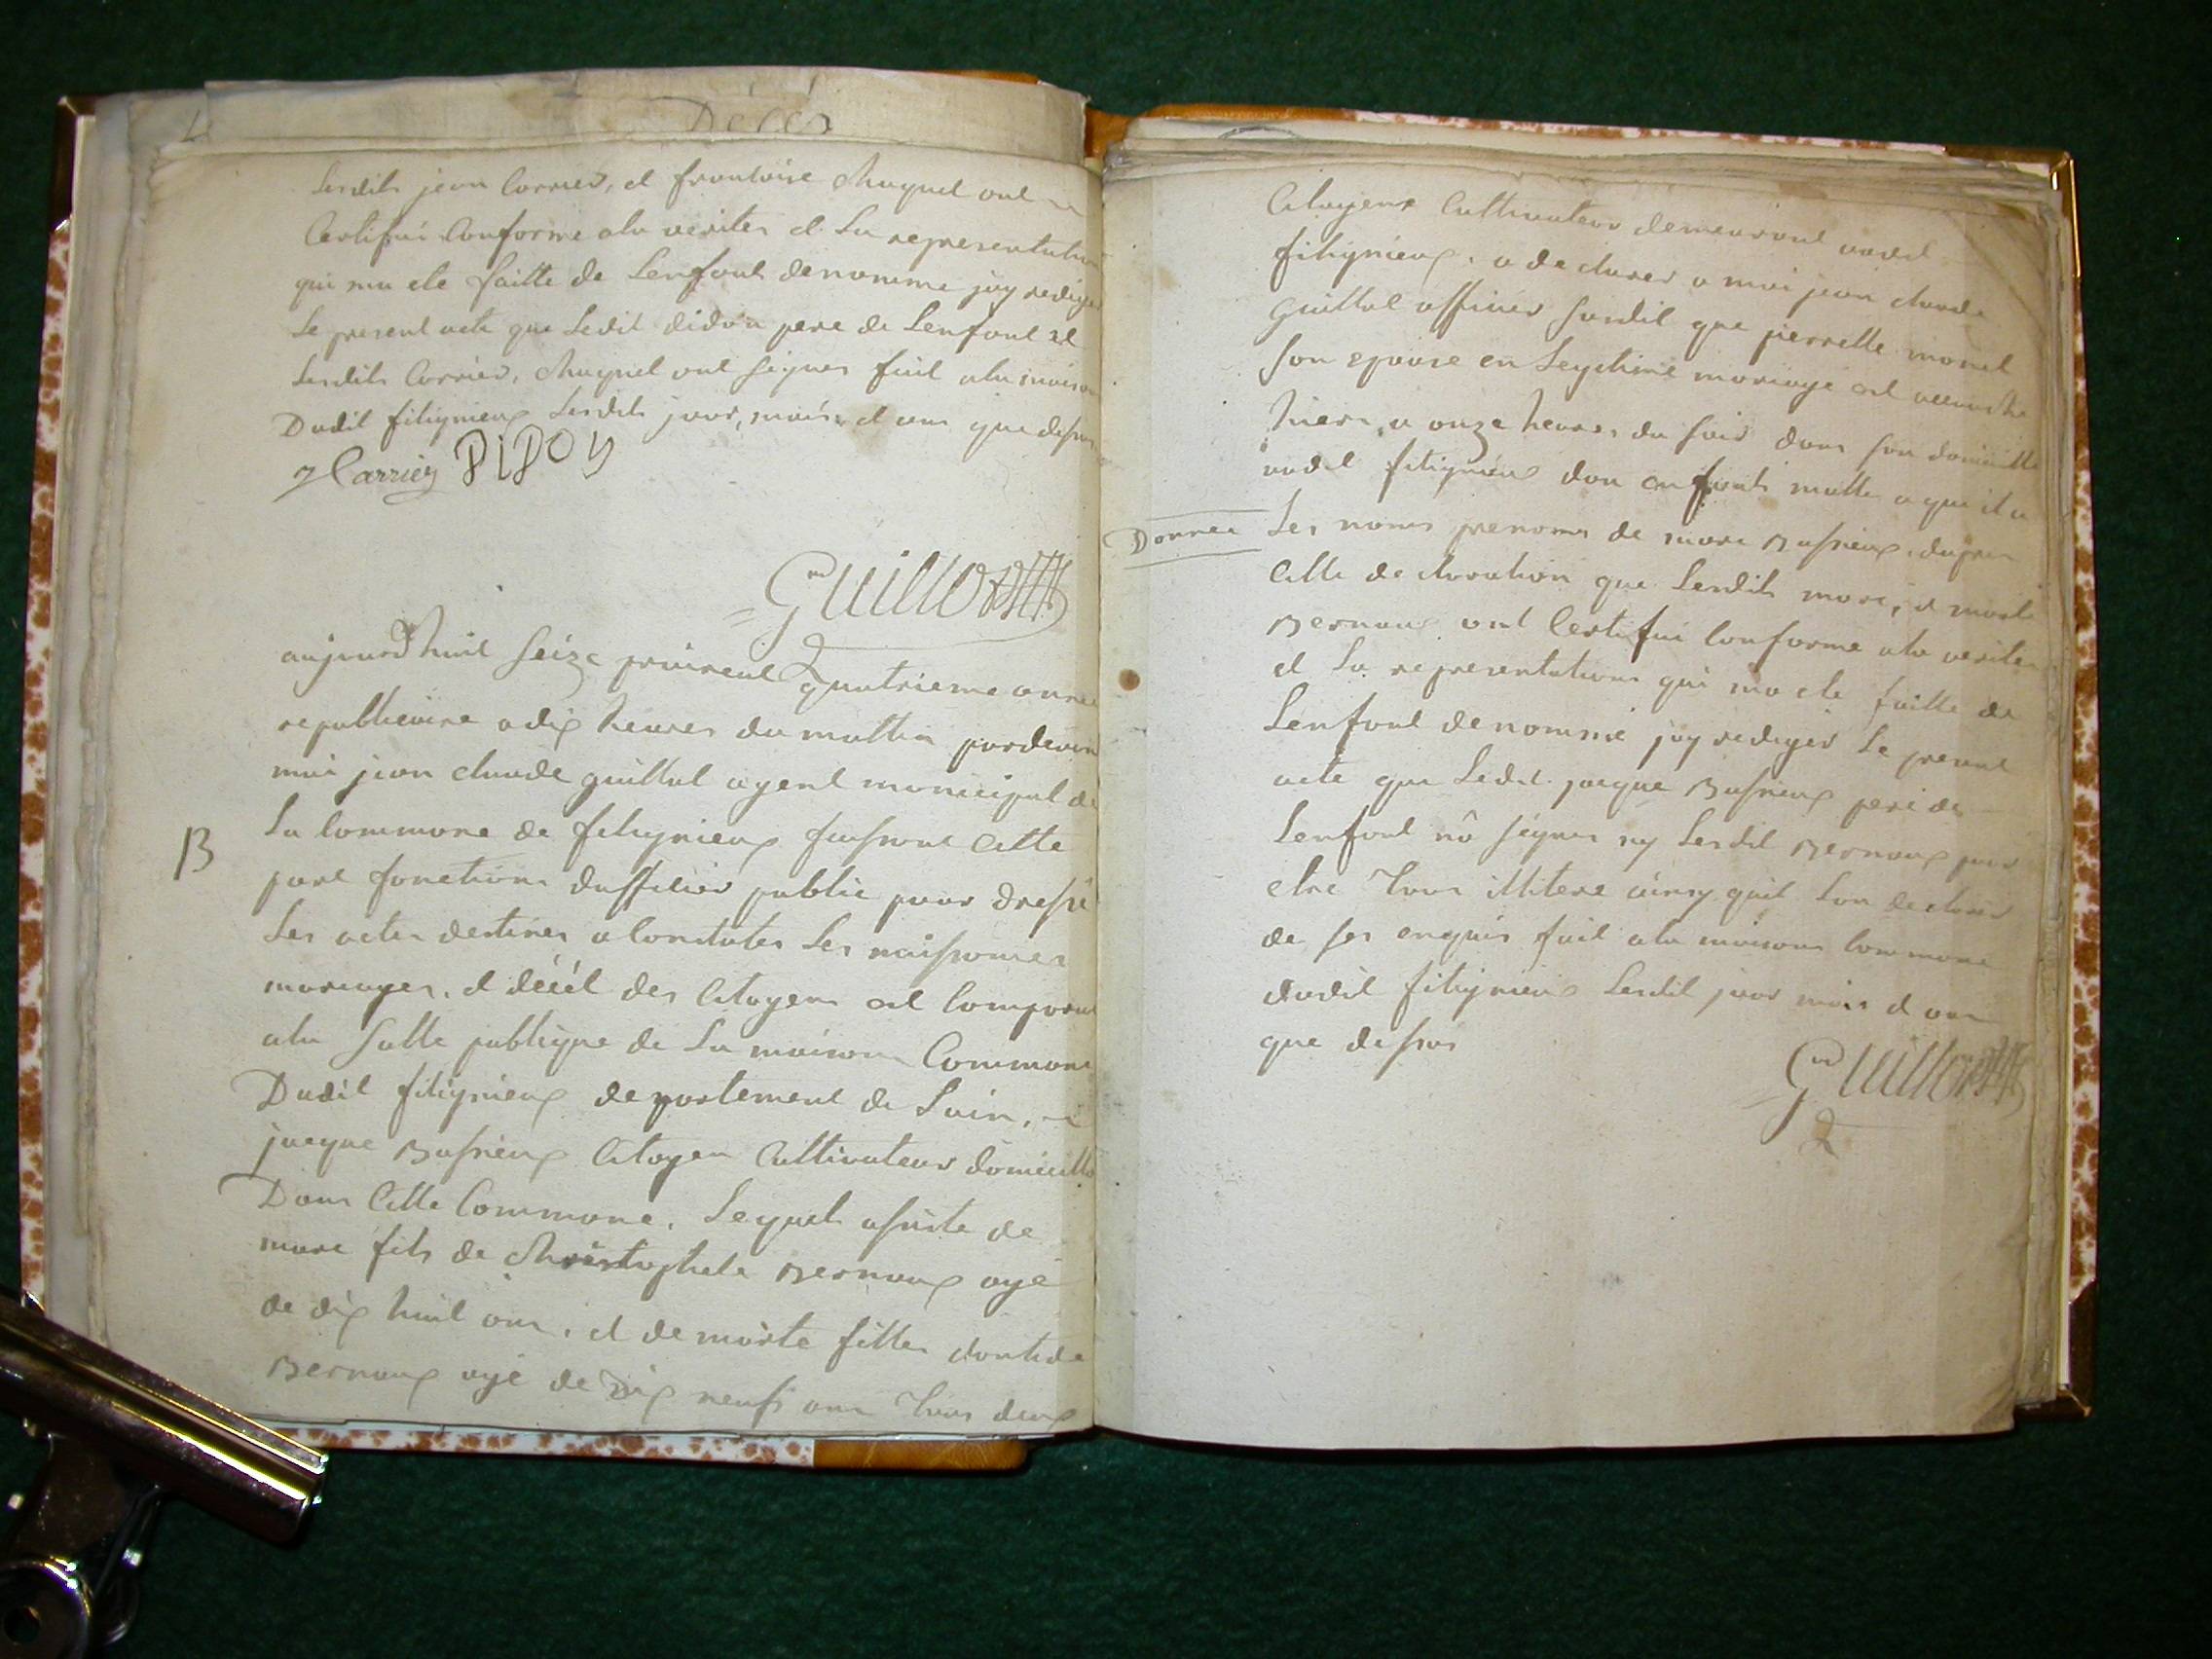 Décés
Lesdits jean Carrier, et francoise Chuquet ont
Certifié Conforme ala veritée et La representation
qui ma ete faitte de Lenfant denomme jay rediger
Le present acte que Ledit didon pere de Lenfant et
Lesdits Carrier, Chuquet ont signer fait ala maison
Dudit fitignieux Lesdits jour, mois, et ans que dessus
Carrier DIDON
Guillot
aujourdhuit seize praireal quatrieme année
republicaine a dix heures du mattin pardevan
moi jean claude guillot agent municipal de
B
La Commone de fitignieux faisant Cette
part fonctions dufficier public pour dressé
Les actes destinés a Constater Les naissances
mariages, et décét des Citoyens est Comparus
ala salle publique de La maisons Commone
Dudit fitignieux departement de Lain,
jacque Bassieux Citoyen Cultivateur domicillé
Dans Cette Commone, Lequel assiste de
marc fils de Christophele Bernoux agé
de dix huit ans, et de marte filles
Bernoux agé de Dix neufs ans tous deux
Citoyens Cultivateur demeurant audit
fitignieux, a declarer a moi jean claude
guillot officier susdit que pierrette monet
son epouse en Leyetime mariage est accouche
hier, a onze heures du soir dans son domicille
audit fitignieux dun enfants malle a qui il a
Donnée Les noms prenoms de marc Bassieux, dapres
Cette declaration que Lesdits marc, et marte
Bernoux ont Certifié Conforme ala veritée
et La representations qui ma ete faitte de
Lenfant denommé jay rediger Le present
acte que Ledit jacque Bassieux pere de
Lenfant nô signer ny Lesdit Bernoux pour
etre tous illitere ainsy quil Lon declarer
de ses enquis fait ala maisons Commone
dudit fitignieux Lesdit jour mois et ans
que dessus
Guillot